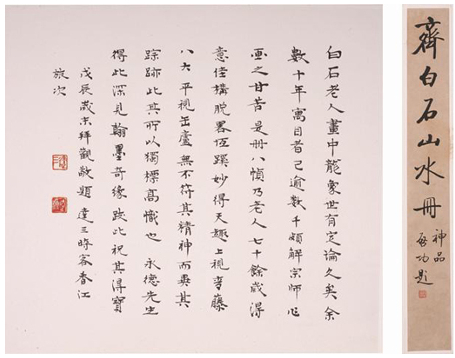 齊白石山水冊
神品
啟功題
白石老人畫中龍象世有定論久矣余
數十年寓目者已逾數千頗解宗師心
畫之甘苦是冊八幀乃老人七十餘歲得
意佳構脫畧恆蹊妙得天趣上視青藤
八大平視缶廬無不符其精神而異其
蹤跡此其所以獨標高幟也 永德先生
得此深見翰墨奇緣跋此祝其得寶
戊辰歲末拜觀敬題 達三時客春江
旅次